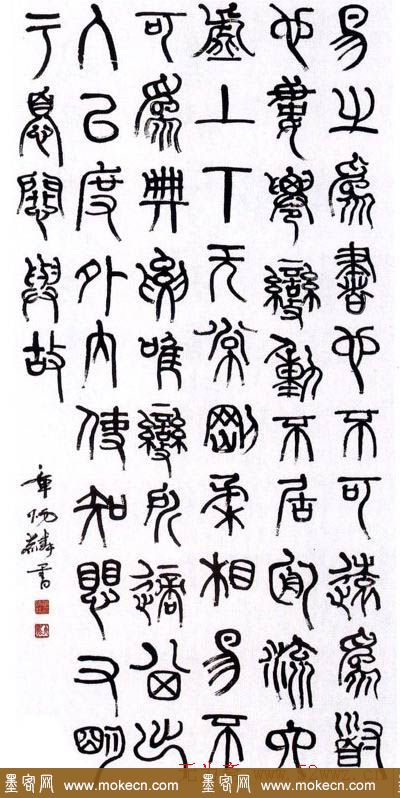 易之為書也不可遠為道
也屢遷變動不居周流六
虛上下无常剛柔相易不
可為典要唯變所適其出
入以度外內使知懼又明
于憂患與故
章炳麟書
墨客网 www.mokecn.com 墨客网 www.mokecn.com 墨客网 www.mokecn.com